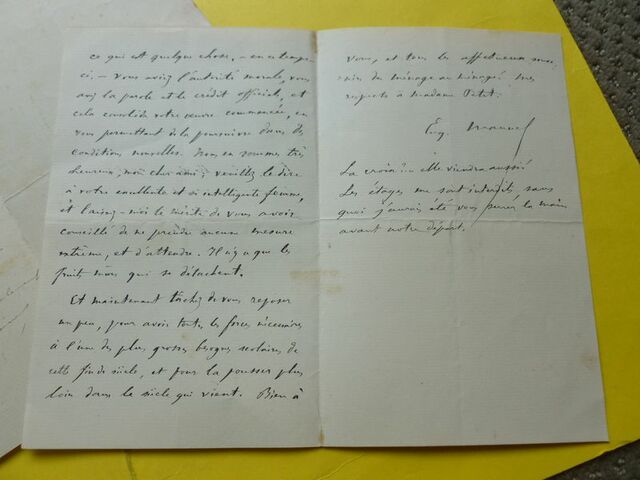 ce qui est quelque chose, – en ce temps-
ci, – vous avez l'autorité morale, vous
avez la parole et le crédit officiel, et
cela consolide votre œuvre commencée, en
vous permettant de la poursuivre dans des
conditions nouvelles. Nous en sommes très
heureux, mon cher ami; veuillez le dire
à votre excellente et si intelligente femme,
et laissez-moi le mérite de vous avoir
conseillé de ne prendre aucune mesure
extrême, et d'attendre. Il n'y a que les
fruits mûrs qui se détachent.
Et maintenant tâchez de vous reposer
un peu, pour avoir toutes les forces nécessaires
à l'une des plus grosses besognes scolaires de
cette fin de siècle, et pour la pousser plus
loin dans le siècle qui vient. Bien à
vous, et tous les affectueux souve-
nirs du ménage au ménage. Mes
respects à Madame Petit.
Eug. Manuel
La croix? – elle viendra aussi!
Les étages me sont interdits, sans
quoi j'aurais été vous serrer la main
avant notre départ.